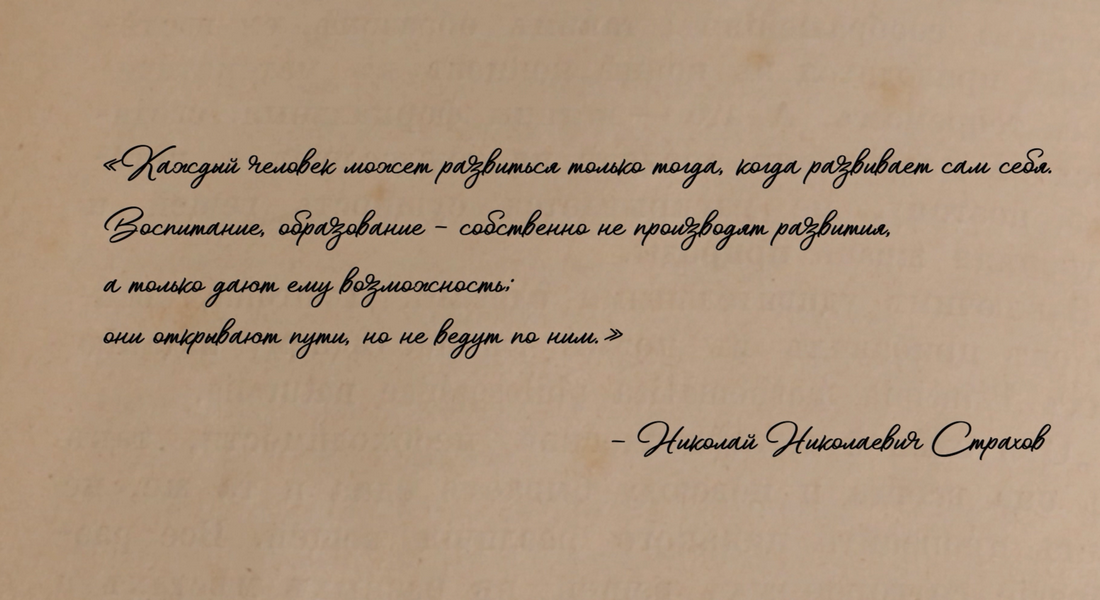 «Каждый человек может развиться только тогда, когда развивает сам себя.
Воспитание, образование – собственно не производят развития,
а только дают ему возможность;
они открывают пути, но не ведут по ним.»
– Николай Николаевич Страхов